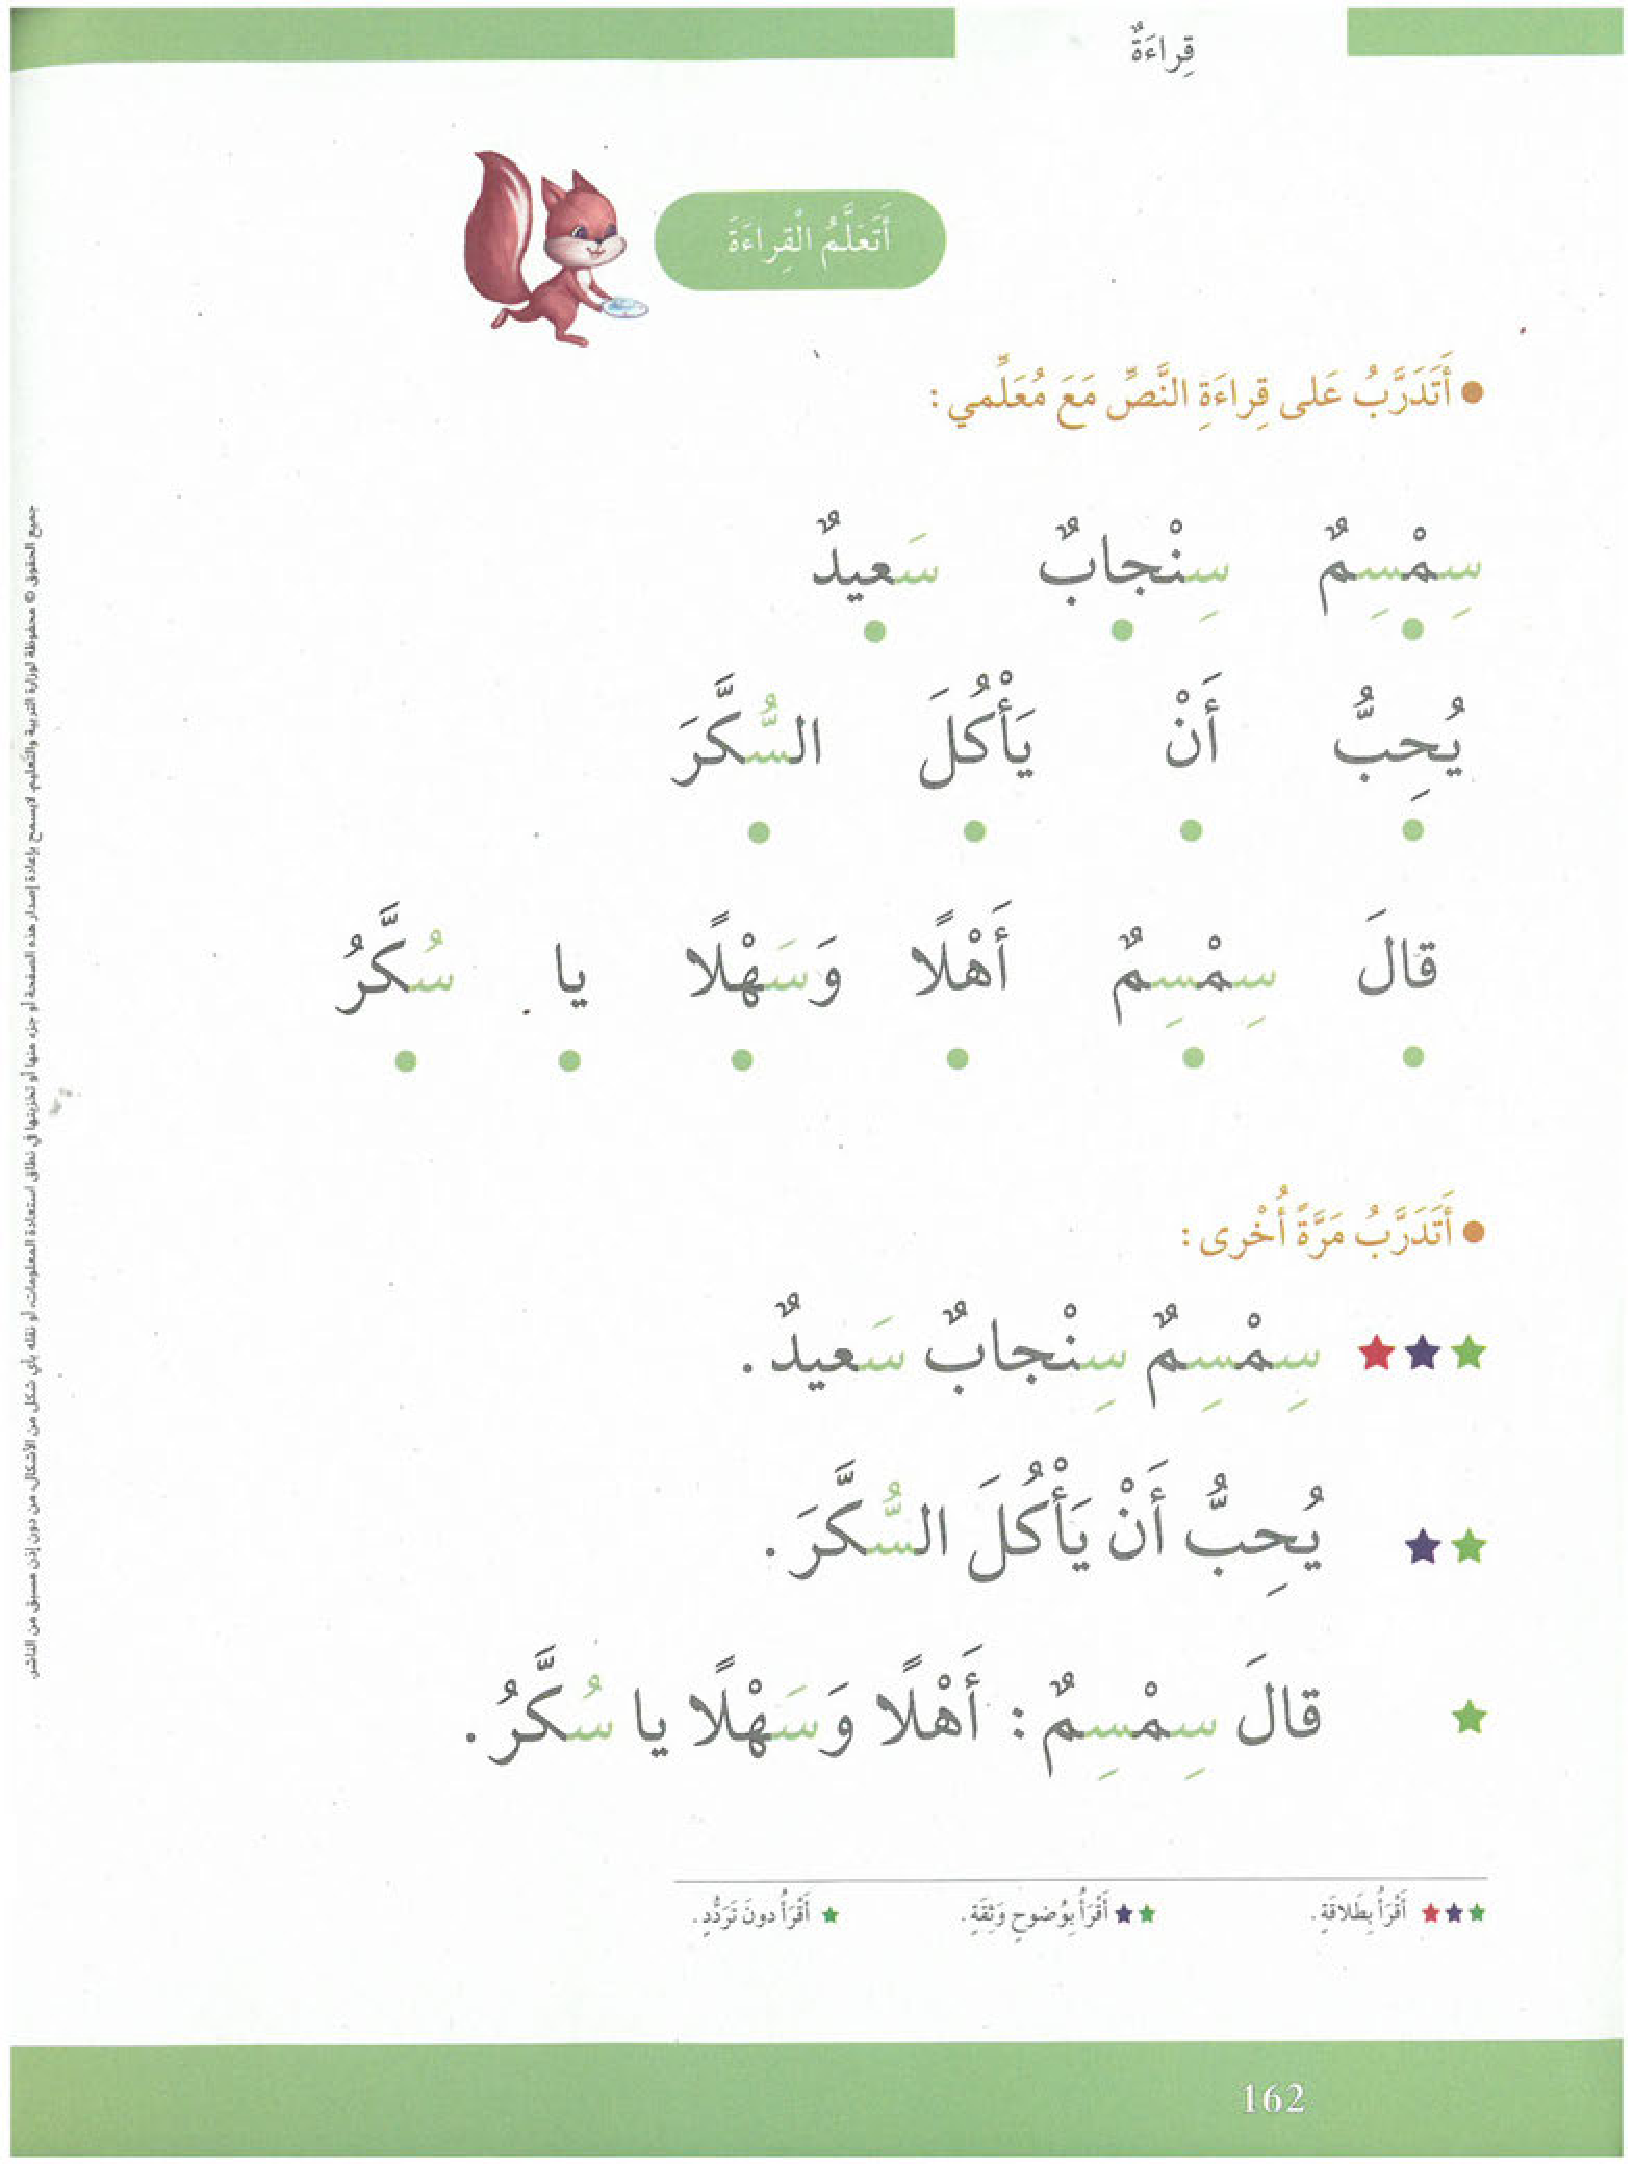 قِراءَةٌ
أَتَعَلَّمُ الْقِراءَةَ
● أَتَدَرَّبُ عَلى قِراءَةِ النَّصِّ مَعَ مُعَلِّمي :
سِمْسِمٌ سِنْجابٌ سَعيدٌ
يُحِبُّ أَنْ يَأْكُلَ السُّكَّرَ
قالَ سِمْسِمٌ أَهْلًا وَسَهْلًا يا سُكَّرُ
● أَتَدَرَّبُ مَرَّةً أُخْرى :
سِمْسِمٌ سِنْجابٌ سَعيدٌ .
يُحِبُّ أَنْ يَأْكُلَ السُّكَّرَ .
قالَ سِمْسِمٌ : أَهْلًا وَسَهْلًا يا سُكَّرُ .
★★★ أَقْرَأُ بِطَلاقَةٍ. ★★ أَقْرَأُ بِوُضوحٍ وَثِقَةٍ. ★ أَقْرَأُ دونَ تَرَدُّدٍ.
162
جميع الحقوق © محفوظة لوزارة التربية والتعليم. لايسمح بإعادة إصدار هذه الصفحة أو جزء منها أو تخزينها في نطاق استعادة المعلومات، أو نقله بأي شكل من الأشكال، من دون إذن مسبق من الناشر.